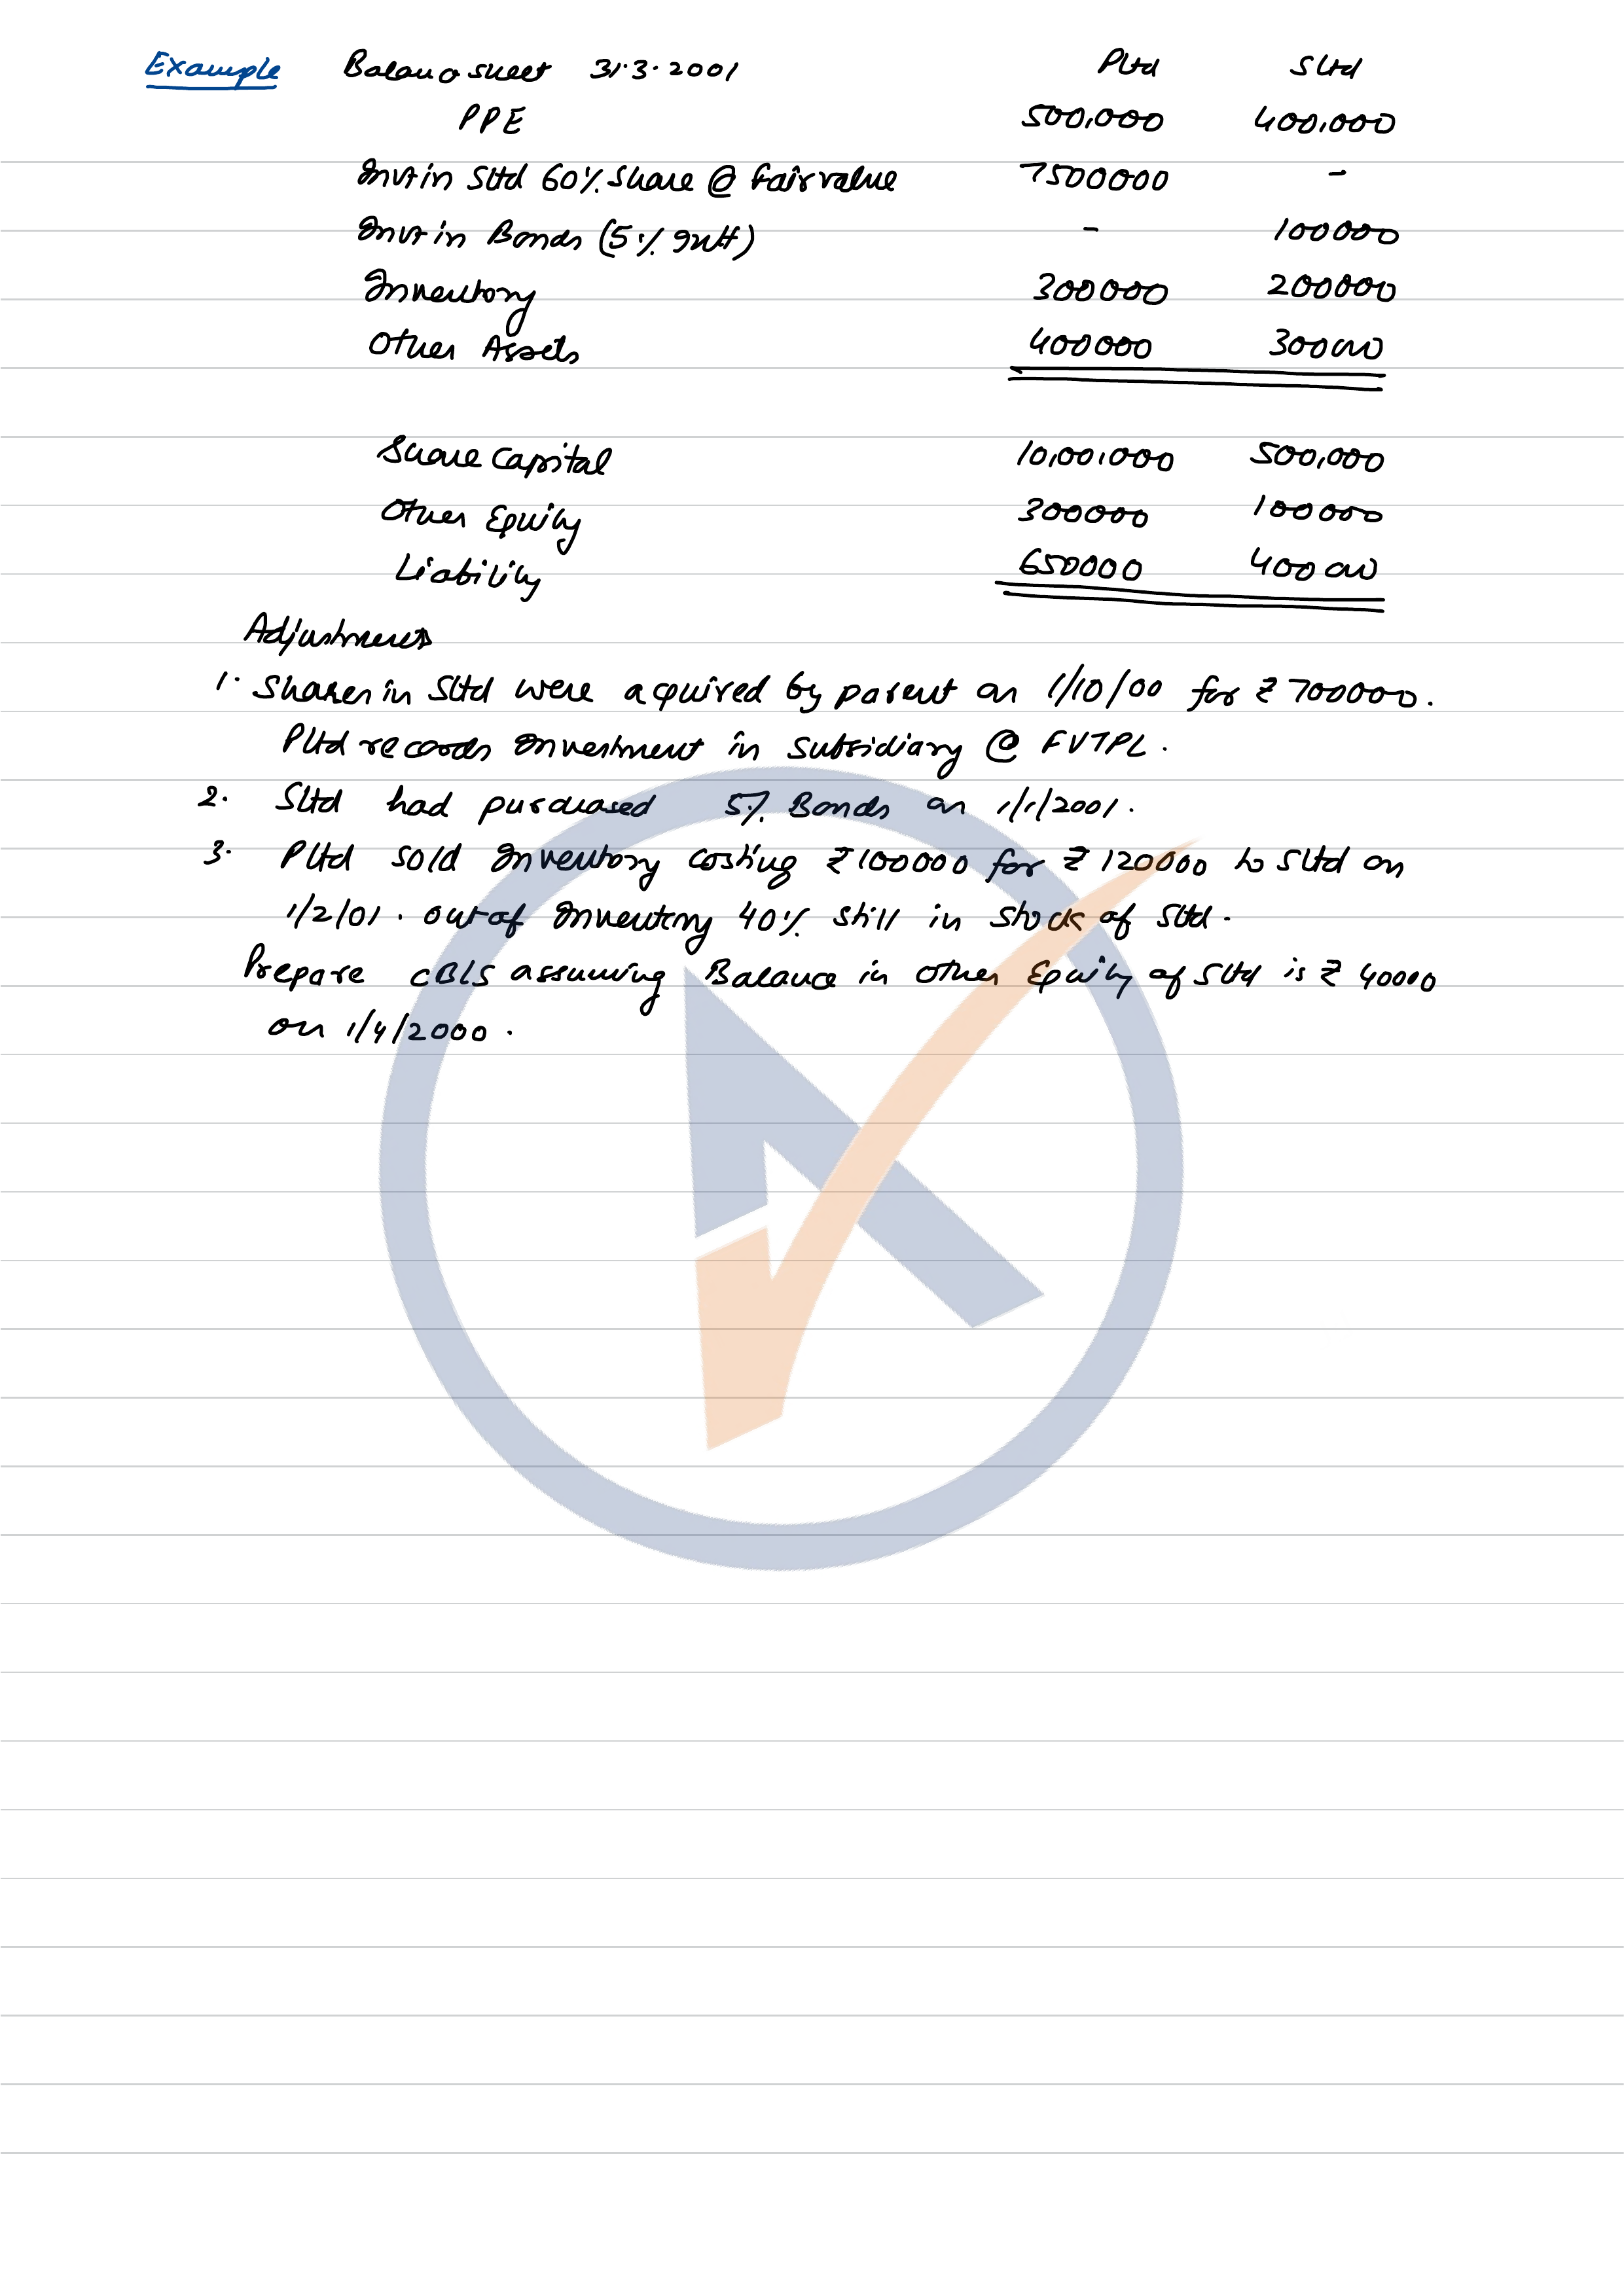 Example Balance sheet 31.3.2001 Pltd Sltd
PPE 500,000 400,000
Invt in Sltd 60% Share @ fair value 7500000 -
Invt in Bonds (5% Intt) - 100000
Inventory 300000 200000
Other Assets 400000 300000
Share Capital 10,00,000 500,000
Other Equity 300000 100000
Liability 650000 400000
Adjustments
1. Shares in Sltd were acquired by parent on 1/10/00 for ₹ 700000.
Pltd records Investment in subsidiary @ FVTPL.
2. Sltd had purchased 5% Bonds on 1/1/2001.
3. Pltd sold Inventory costing ₹ 100000 for ₹ 120000 to Sltd on
1/2/01. out of Inventory 40% still in stock of Sltd.
Prepare CBLS assuming Balance in other Equity of Sltd is ₹ 40000
on 1/4/2000.